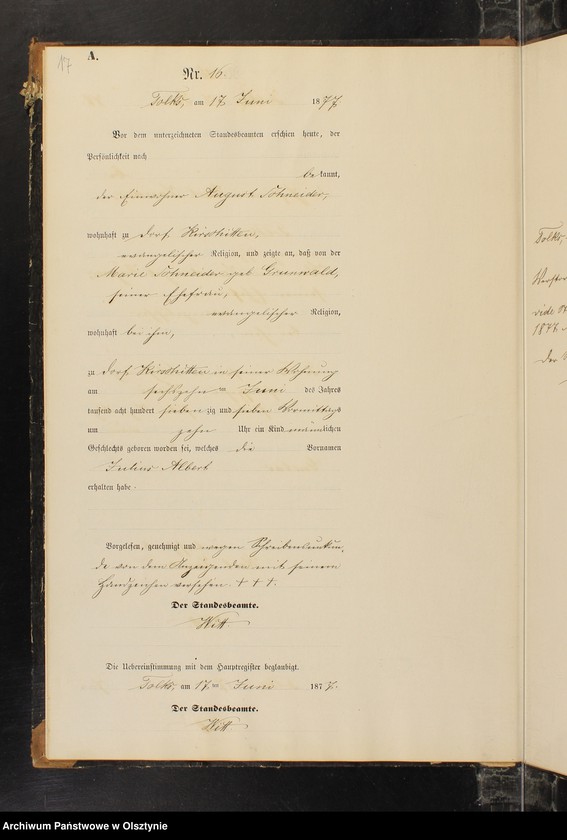 17
A.
Nr. 16.
Tolks, am 17 Juni 1877.
Vor dem unterzeichneten Standesbeamten erschien heute, der
Persönlichkeit nach
bekannt,
der Einwohner August Schneider,
wohnhaft zu Dorf
evangelischer Religion, und zeigte an, daß von der
Marie Schneider geb Grunwald,
seiner Ehefrau,
evangelischer Religion,
wohnhaft bei ihm,
zu Dorf in seiner Wohnung
am sechszehn ten Juni des Jahres
tausend acht hundert siebenzig und sieben Vormittags
um zehn Uhr ein Kind männlichen
Geschlechts geboren worden sei, welches die Vornamen
Julius Albert
erhalten habe.
Vorgelesen, genehmigt und wegen Schreibensunkun-
de von dem Anzeigenden mit seinem
Handzeichen versehen. + + +.
Der Standesbeamte.
Witt
Die Uebereinstimmung mit dem Hauptregister beglaubigt.
Tolks, am 17ten Juni 1877.
Der Standesbeamte.
Witt
Tolks,
vide
1877
der
Archiwum Państwowe w Olsztynie